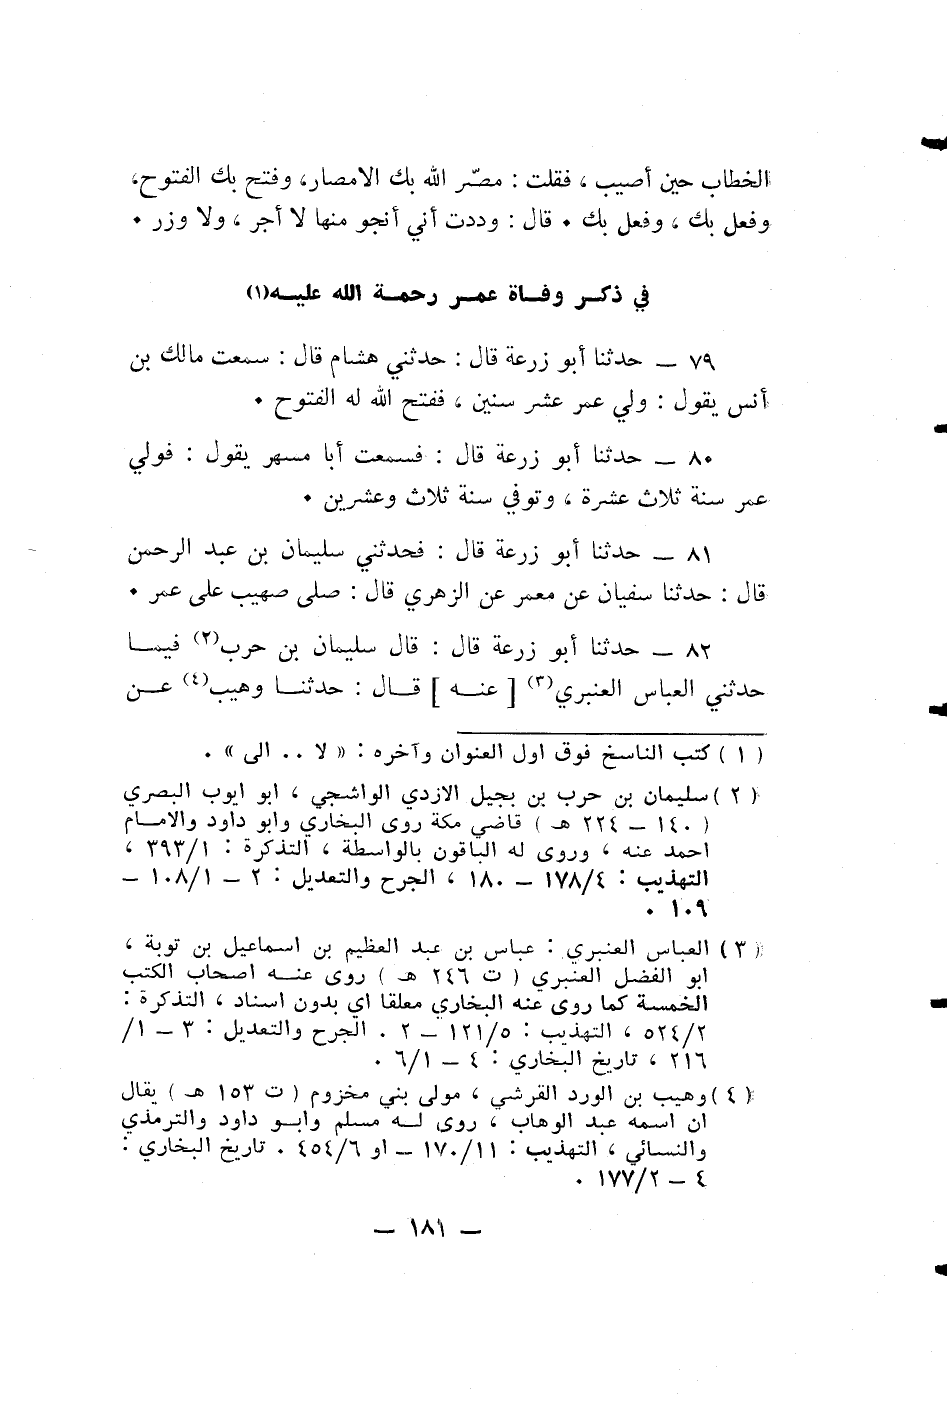 الخطاب حين أصيب ، فقلت : مصّر الله بك الامصار، وفتح بك الفتوح،
وفعل بك ، وفعل بك . قال : وددت أني أنجو منها لا أجر ، ولا وزر .
في ذكر وفاة عمر رحمة الله عليه(١)
٧٩ ــ حدثنا أبو زرعة قال : حدثني هشام قال : سمعت مالك بن
أنس يقول : ولي عمر عشر سنين ، ففتح الله له الفتوح .
٨٠ ــ حدثنا أبو زرعة قال : فسمعت أبا مسهر يقول : فولي
عمر سنة ثلاث عشرة ، وتوفي سنة ثلاث وعشرين .
٨١ ــ حدثنا أبو زرعة قال : فحدثني سليمان بن عبد الرحمن
قال : حدثنا سفيان عن معمر عن الزهري قال : صلى صهيب على عمر .
٨٢ ــ حدثنا أبو زرعة قال : قال سليمان بن حرب(٢) فيما
حدثني العباس العنبري(٣) [ عنه ] قال : حدثنا وهيب(٤) عن
( ١ ) كتب الناسخ فوق اول العنوان وآخره : « لا .. الى » .
( ٢ ) سليمان بن حرب بن بجيل الازدي الواشجي ، ابو ايوب البصري
( ١٤٠ ــ ٢٢٤ هـ ) قاضي مكة روى البخاري وابو داود والامام
احمد عنه ، وروى له الباقون بالواسطة ، التذكرة : ٣٩٣/١ ،
التهذيب : ١٧٨/٤ ــ ١٨٠ ، الجرح والتعديل : ٢ ــ ١٠٨/١ ــ
١٠٩ .
( ٣ ) العباس العنبري : عباس بن عبد العظيم بن اسماعيل بن توبة ،
ابو الفضل العنبري ( ت ٢٤٦ هـ ) روى عنه اصحاب الكتب
الخمسة كما روى عنه البخاري معلقا اي بدون اسناد ، التذكرة :
٥٢٤/٢ ، التهذيب : ١٢١/٥ ــ ٢ . الجرح والتعديل : ٣ ــ ١/
٢١٦ ، تاريخ البخاري : ٤ ــ ٦/١ .
( ٤ ) وهيب بن الورد القرشي ، مولى بني مخزوم ( ت ١٥٣ هـ ) يقال
ان اسمه عبد الوهاب ، روى له مسلم وابو داود والترمذي
والنسائي ، التهذيب : ١٧٠/١١ ــ او ٤٥٤/٦ . تاريخ البخاري :
٤ ــ ١٧٧/٢ .
ــ ١٨١ ــ